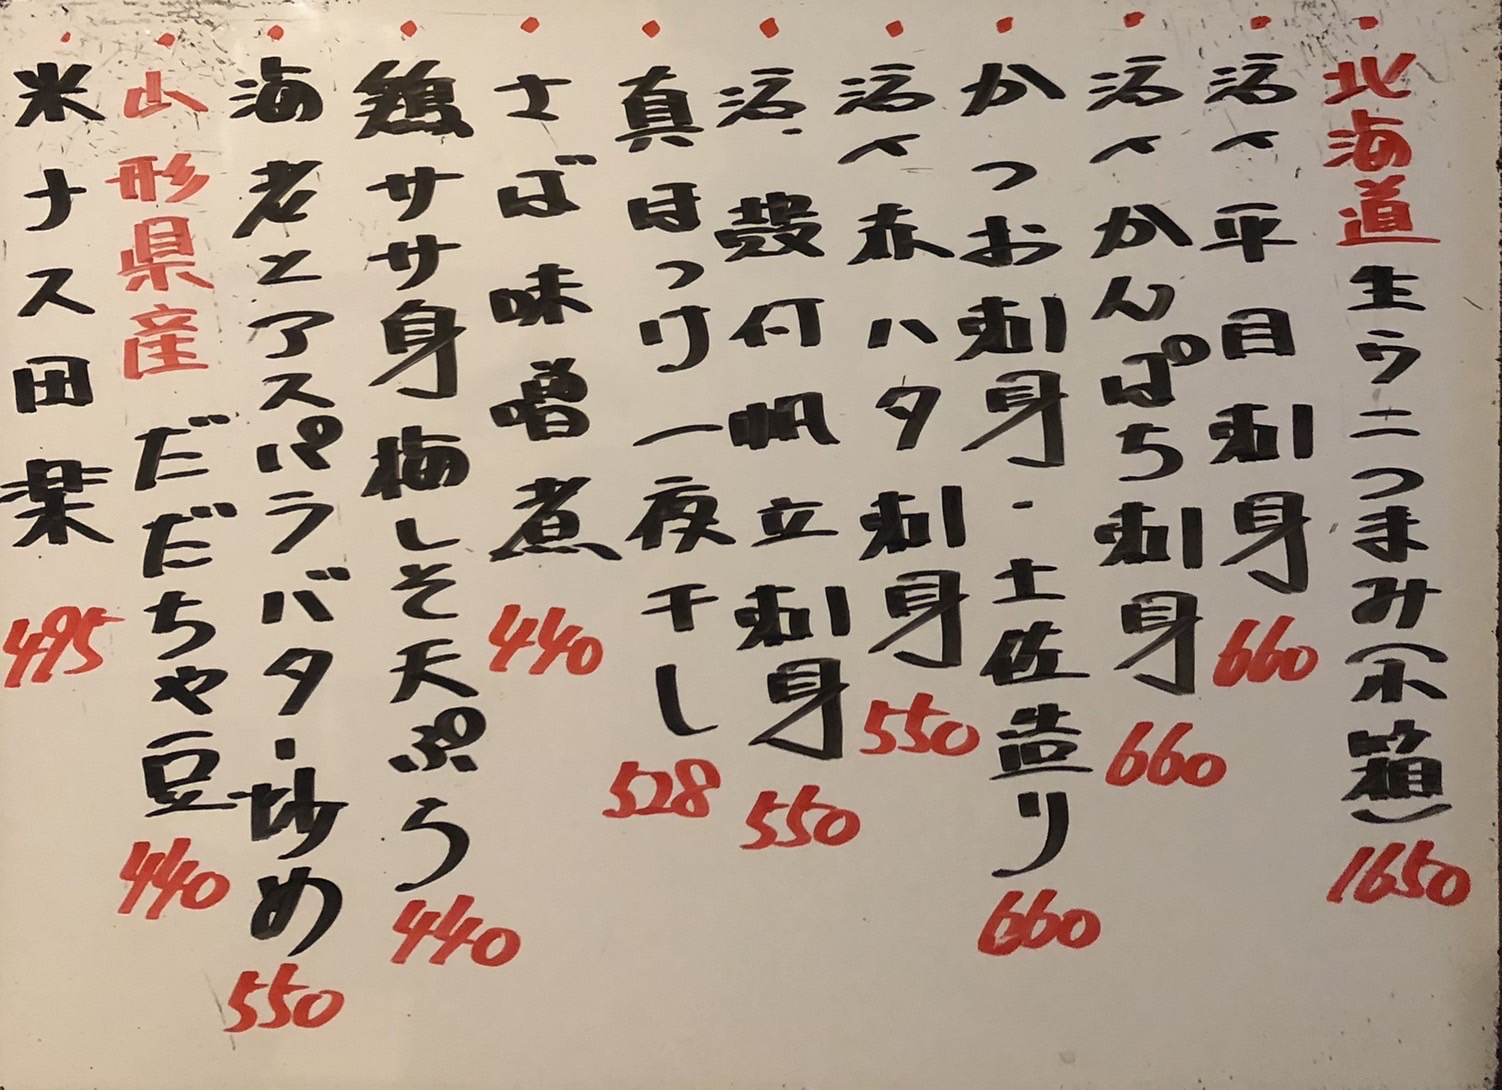 北海道生ウニつまみ(木箱)1650
活〆平目刺身660
活〆かんぱち刺身660
かつお刺身・土佐造り660
活〆赤ハタ刺身550
活・殻付帆立刺身550
真ほっけ一夜干し528
さば味噌煮440
鶏ササ身梅しそ天ぷら440
海老とアスパラバター炒め550
山形県産だだちゃ豆440
米ナス田楽495